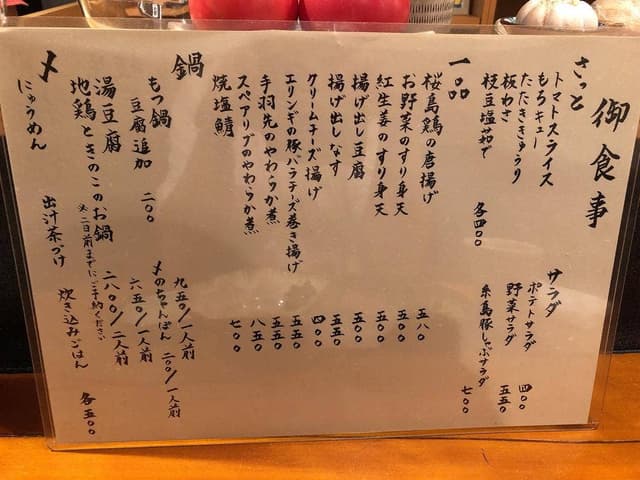 御食事
さっと
トマトスライス
もろキュー
たたききゅうり
板わさ
枝豆塩茹で
各四〇〇
サラダ
ポテトサラダ 四〇〇
野菜サラダ 五五〇
糸島豚しゃぶサラダ 七〇〇
一品
桜島鶏の唐揚げ 五八〇
お野菜のすり身天 五〇〇
紅生姜のすり身天 五〇〇
揚げ出し豆腐 五五〇
揚げ出しなす 五五〇
クリームチーズ揚げ 四〇〇
エリンギの豚バラチーズ巻き揚げ 五五〇
手羽先のやわらか煮 五五〇
スペアリブのやわらか煮 八五〇
焼塩鯖 七〇〇
鍋
もつ鍋 九五〇/一人前
豆腐追加 二〇〇 〆のちゃんぽん 二〇〇/一人前
湯豆腐 六五〇/一人前
地鶏ときのこのお鍋 二八〇〇/二人前
※二日前までにご予約ください
〆
にゅうめん 出汁茶づけ 炊き込みごはん 各五〇〇